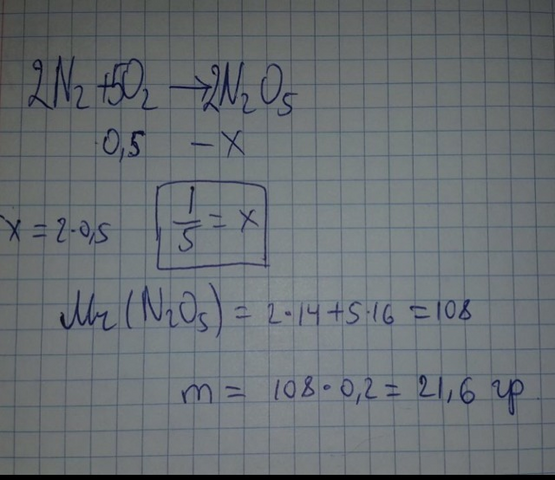 2N₂+5O₂ → 2N₂O₅
0,5 – x
x = 2·0,5
1/5 = x
Mr(N₂O₅) = 2·14+5·16 = 108
m = 108·0,2 = 21,6 гр